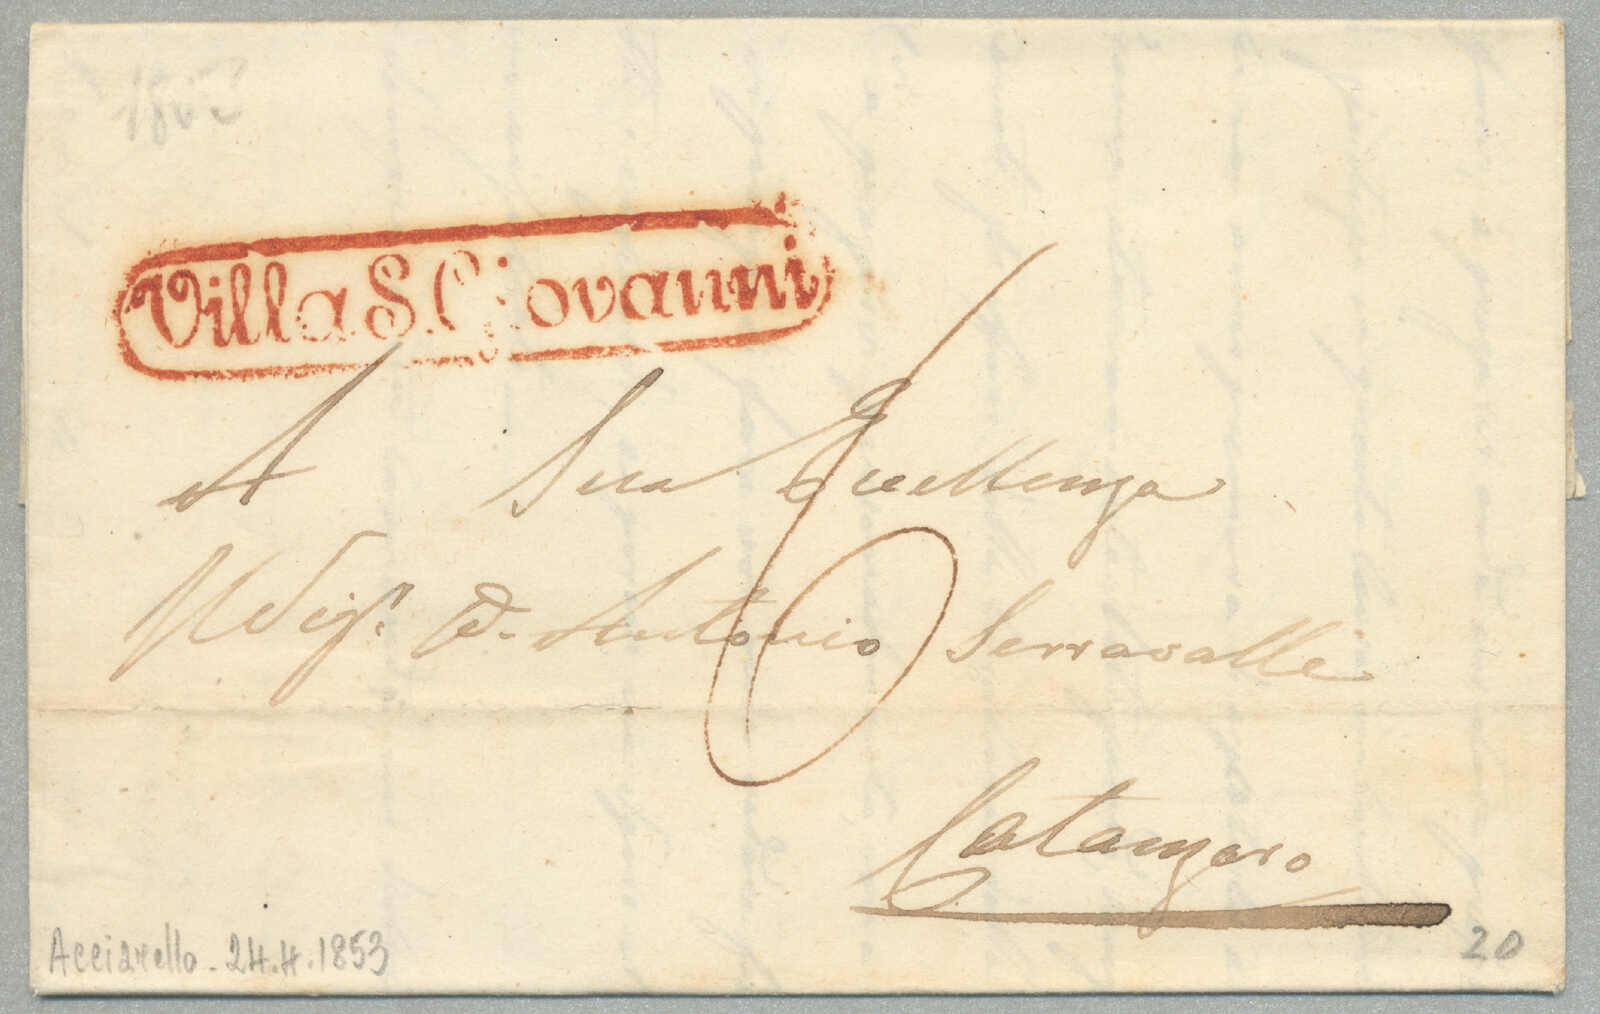 Villa S. Giovanni
A Sua Eccellenza
D. Antonio Serravalle
6
Catanzaro
Acciarello - 24.4.1853
20